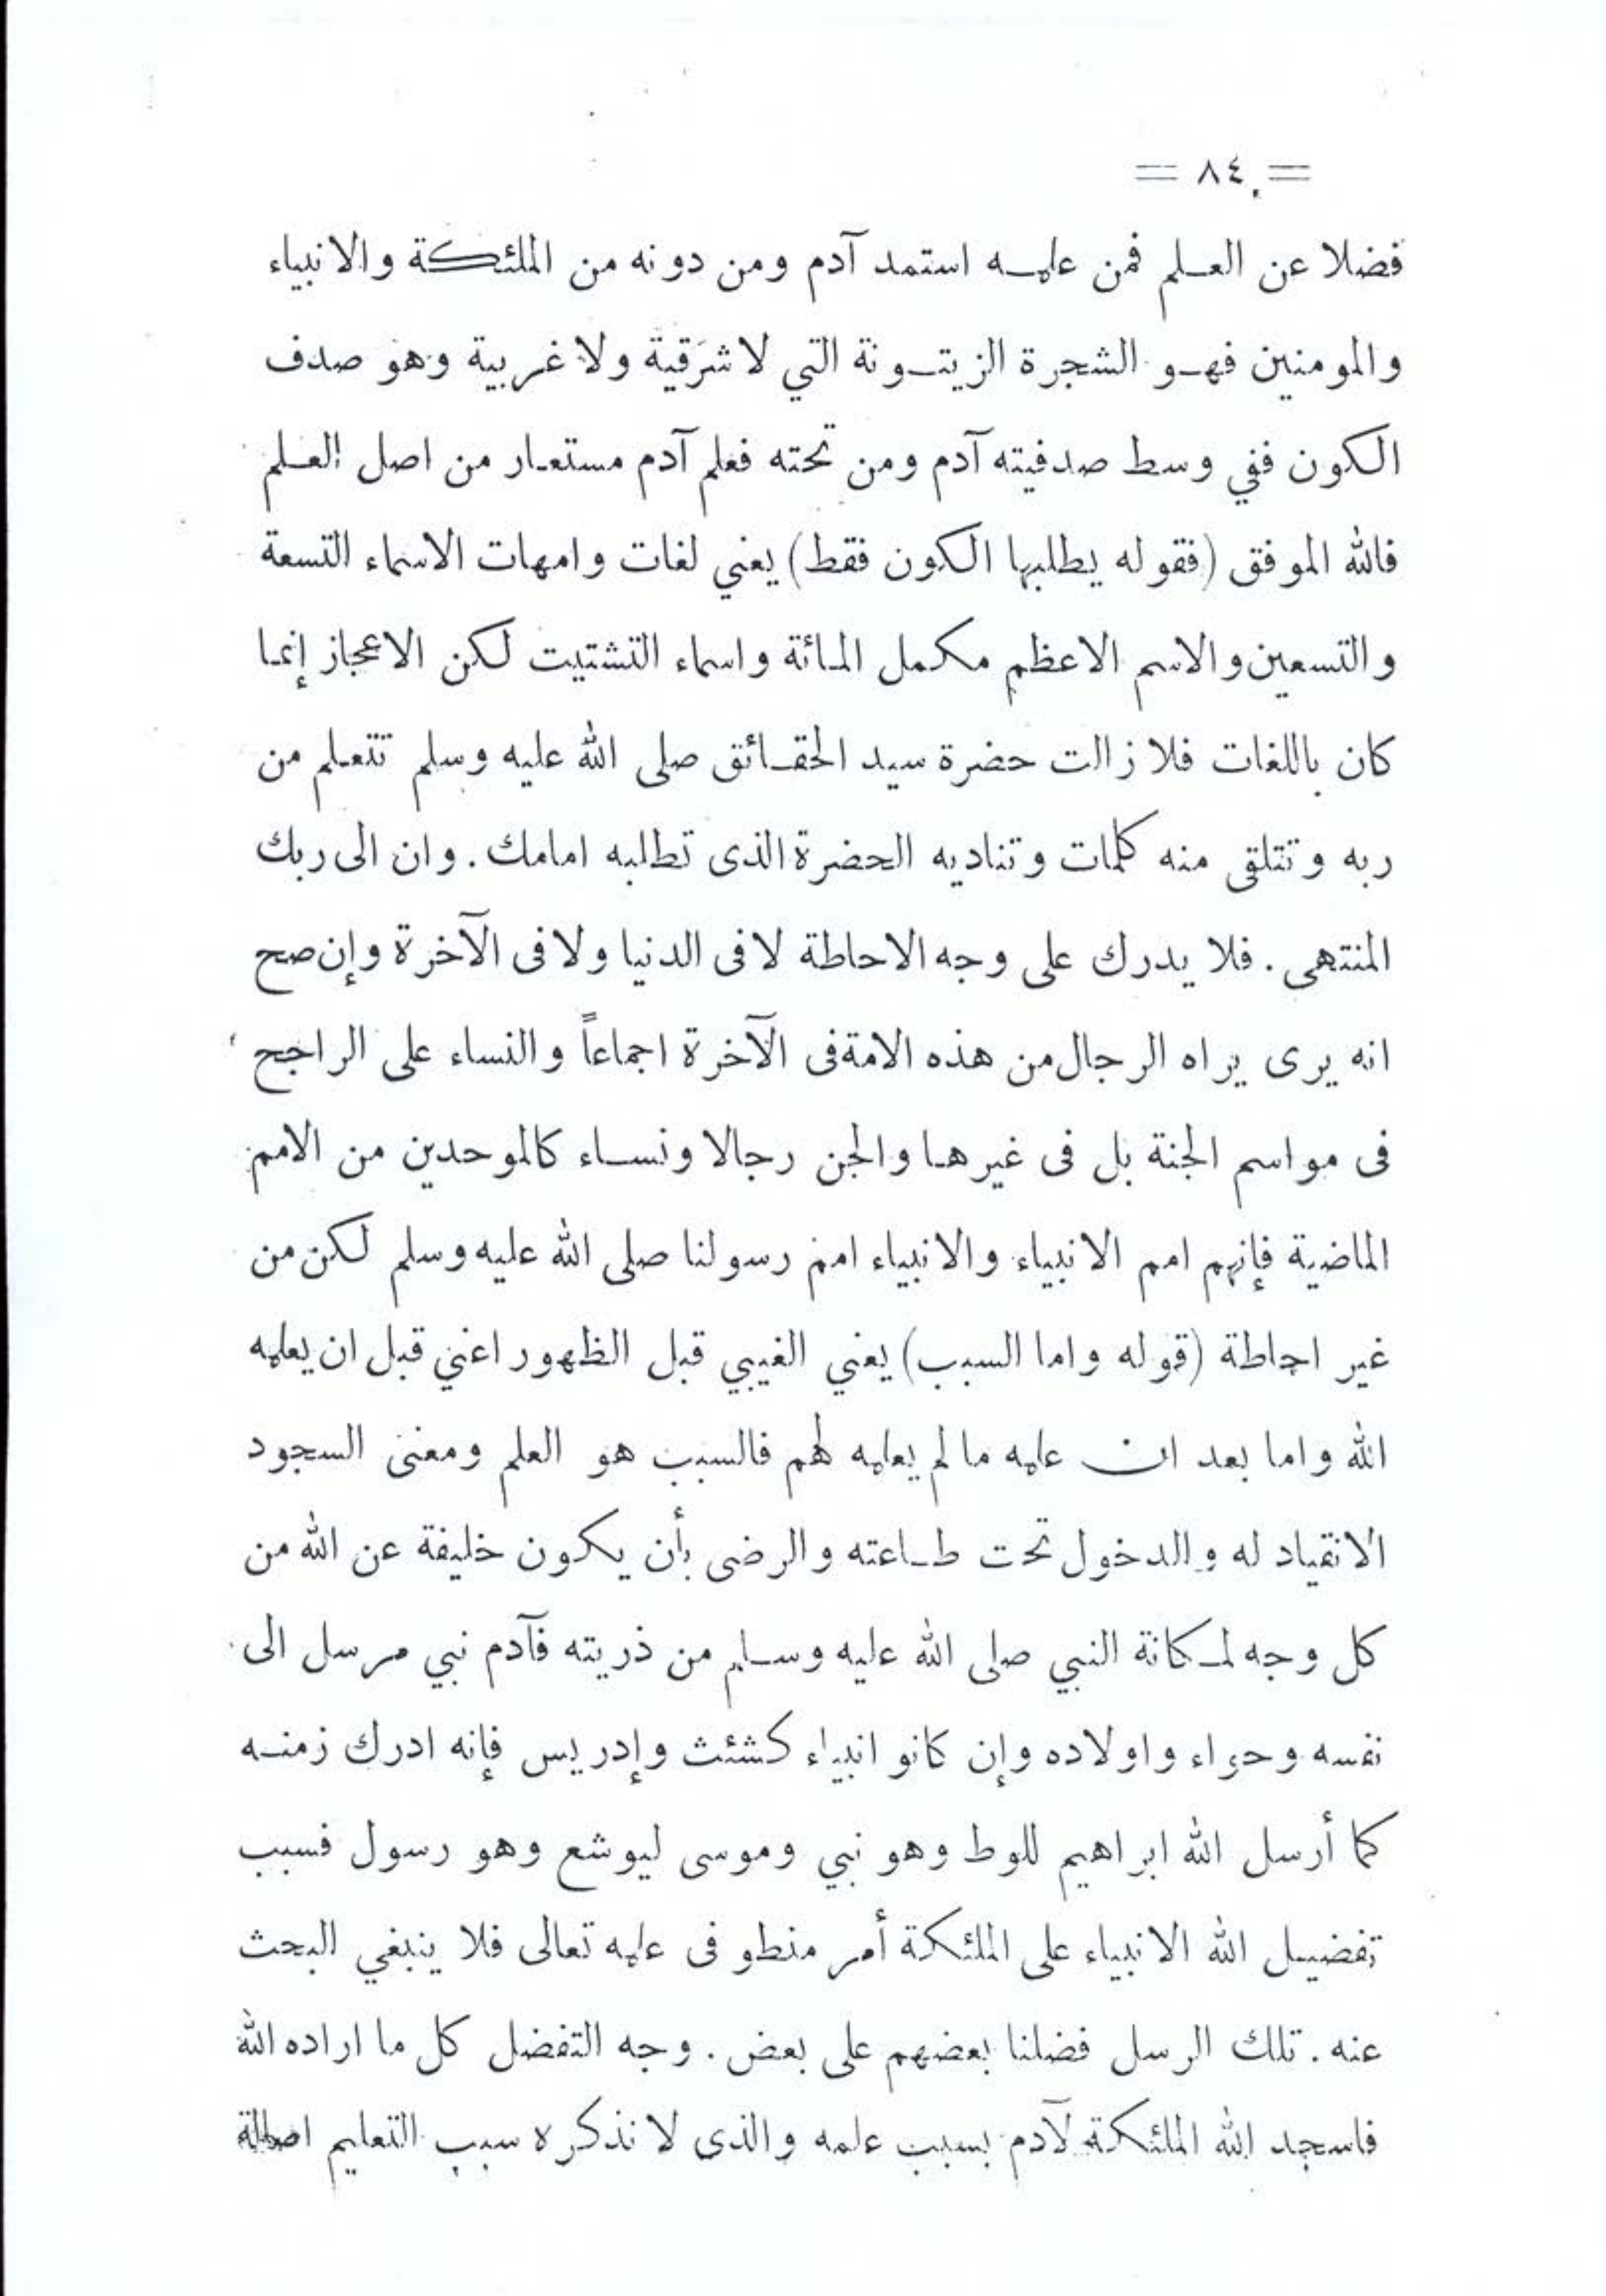 = ٨٤ =
فضلا عن العلم فمن علمه استمد آدم ومن دونه من الملئكة والانبياء
والمومنين فهو الشجرة الزيتونة التي لا شرقية ولا غربية وهو صدف
الكون ففي وسط صدفيته آدم ومن تحته فعلم آدم مستعار من اصل العلم
فالله الموفق (فقوله يطلبها الكون فقط) يعني لغات وامهات الاسماء التسعة
والتسعين والاسم الاعظم مكمل المائة واسماء التشتيت لكن الاعجاز إنما
كان باللغات فلا زالت حضرة سيد الحقائق صلى الله عليه وسلم تتعلم من
ربه وتتلقى منه كلمات وتناديه الحضرة الذى تطلبه امامك . وان الى ربك
المنتهى . فلا يدرك على وجه الاحاطة لا فى الدنيا ولا فى الآخرة وإن صح
انه يرى يراه الرجال من هذه الامة فى الآخرة اجماعاً والنساء على الراجح
فى مواسم الجنة بل فى غيرها والجن رجالا ونساء كالموحدين من الامم
الماضية فإنهم امم الانبياء والانبياء امم رسولنا صلى الله عليه وسلم لكن من
غير احاطة (قوله واما السبب) يعني الغيبي قبل الظهور اعني قبل ان يعلمه
الله واما بعد ان علمه ما لم يعلمه لهم فالسبب هو العلم ومعنى السجود
الانقياد له والدخول تحت طاعته والرضى بأن يكون خليفة عن الله من
كل وجه لمكانة النبي صلى الله عليه وسلم من ذريته فآدم نبي مرسل الى
نفسه وحواء واولاده وإن كانو انبياء كشئث وإدريس فإنه ادرك زمنه
كما أرسل الله ابراهيم للوط وهو نبي وموسى ليوشع وهو رسول فسبب
تفضيل الله الانبياء على الملئكة أمر منطو فى علمه تعالى فلا ينبغي البحث
عنه . تلك الرسل فضلنا بعضهم على بعض . وجه التفضل كل ما اراده الله
فاسجد الله الملئكة لآدم بسبب علمه والذى لا نذكره سبب التعليم اصالة